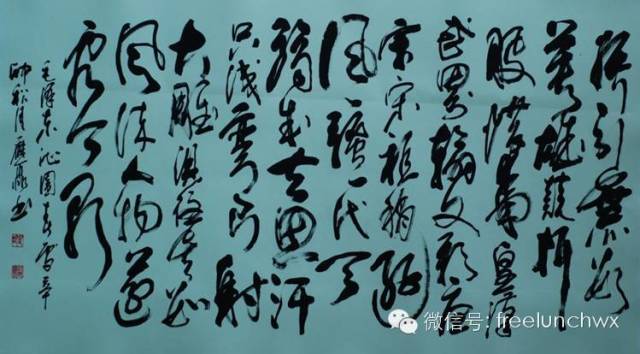 引無數
英雄競折
腰惜秦皇漢
武略輸文采唐
宗宋祖稍遜
风騷一代天
骄成吉思汗
只識彎弓射
大雕俱往矣数
风流人物還
看今朝
毛澤东沁園春雪 辛
卯秋月
书
微信号: freelunchwx